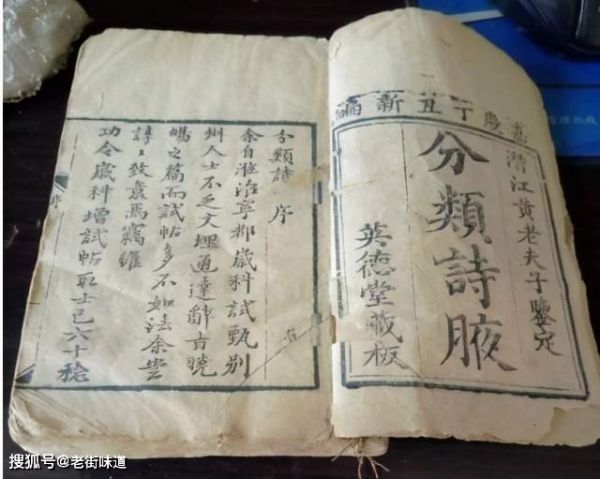 嘉慶丁丑新鐫
潛江黃老夫子鑒定
分類詩腋
英德堂藏板
分類詩 序
余自治寧都歲科試甄別
州人士不乏文理通達辭旨曉
暢之篇而試帖多不如法余嘗
諄〻致意焉竊維
功令歲科增試帖取士已六十稔
序
搜狐号@老街味道